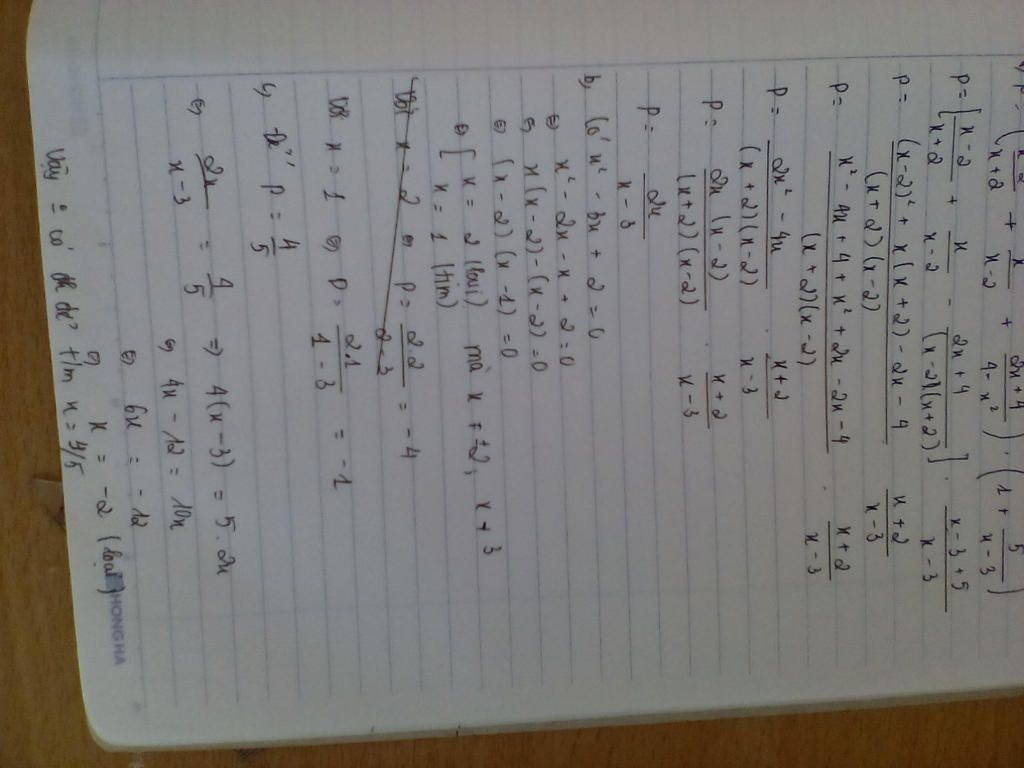 P = (x-2/x+2 + x/x-2 + 2x+4/4-x²) . (1 + 5/x-3)
P = [x-2/x+2 + x/x-2 - 2x+4/(x-2)(x+2)] . x-3+5/x-3
P = (x-2)² + x(x+2) - 2x - 4/(x+2)(x-2) . x+2/x-3
P = x² - 4x + 4 + x² + 2x - 2x - 4/(x+2)(x-2) . x+2/x-3
P = 2x² - 4x/(x+2)(x-2) . x+2/x-3
P = 2x(x-2)/(x+2)(x-2) . x+2/x-3
P = 2x/x-3
b, Có x² - 3x + 2 = 0
⇔ x² - 2x - x + 2 = 0
⇔ x(x-2) - (x-2) = 0
⇔ (x-2)(x-1) = 0
⇔ [ x = 2 (loại) mà x ≠ ±2, x ≠ 3
x = 1 (t/m)
Với x = 2 ⇔ P = 2.2/2-3 = -4
Với x = 1 ⇔ P = 2.1/1-3 = -1
c, Để P = 4/5
⇔ 2x/x-3 = 4/5 ⇒ 4(x-3) = 5.2x
⇔ 4x - 12 = 10x
⇔ 6x = -12
⇔ x = -2 (loại)
Vậy = có để t/m x = 4/5
HONG HA